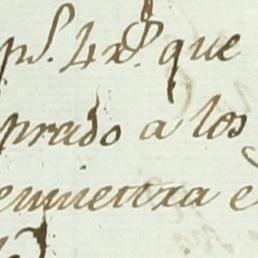 ps. 4 rs. que
prado a los
emienza e